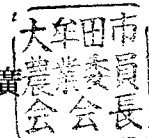 大牟田市
農業委員
会会長
廣